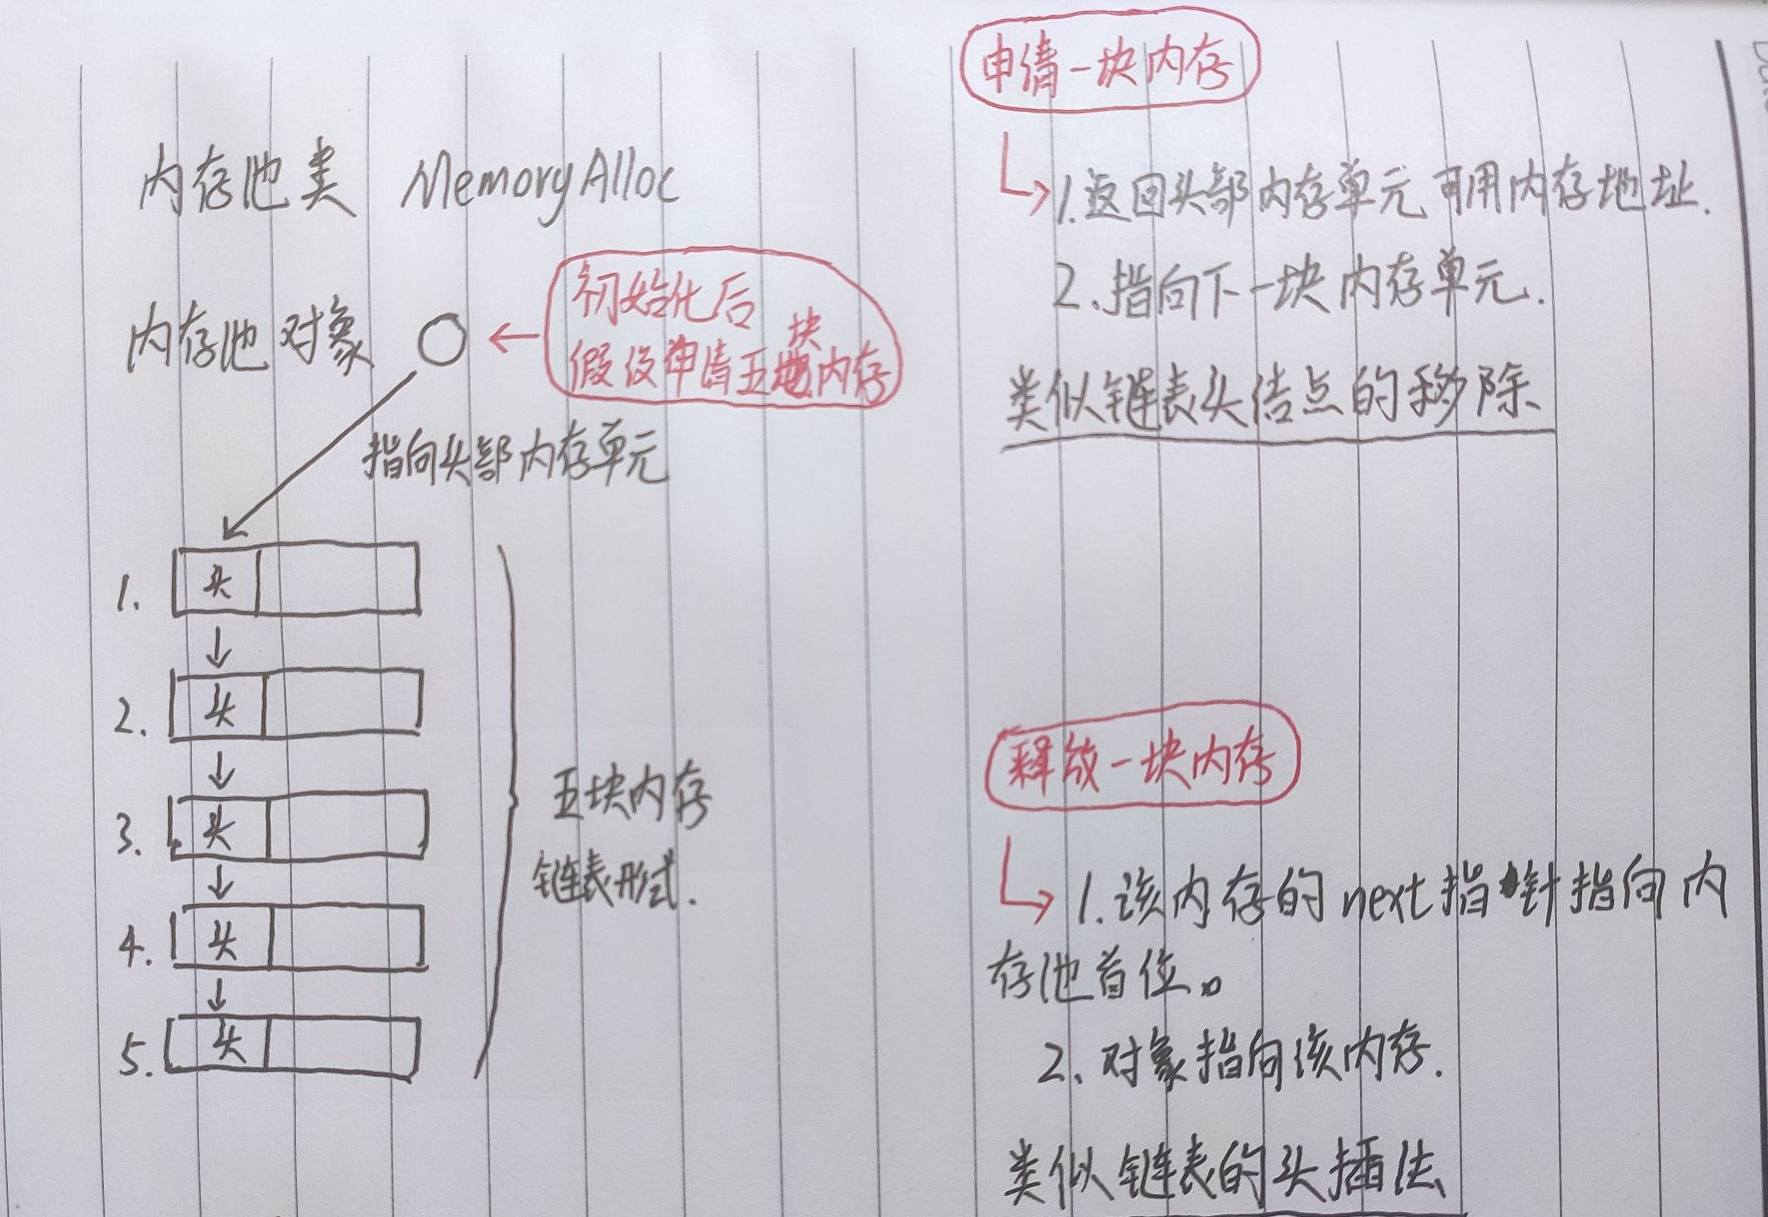 内存池类 MemoryAlloc
内存池 对象
初始化后
假设申请五块内存
指向头部内存单元
1. 头
2. 头
3. 头
4. 头
5. 头
五块内存
链表形式.
申请一块内存
1.返回头部内存单元可用内存地址.
2.指向下一块内存单元.
类似链表头结点的移除
释放一块内存
1.该内存的next指针指向内
存池首位。
2.对象指向该内存.
类似链表的头插法